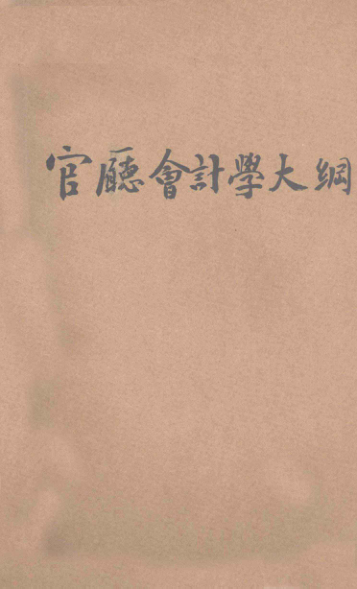 官廳會計學大綱